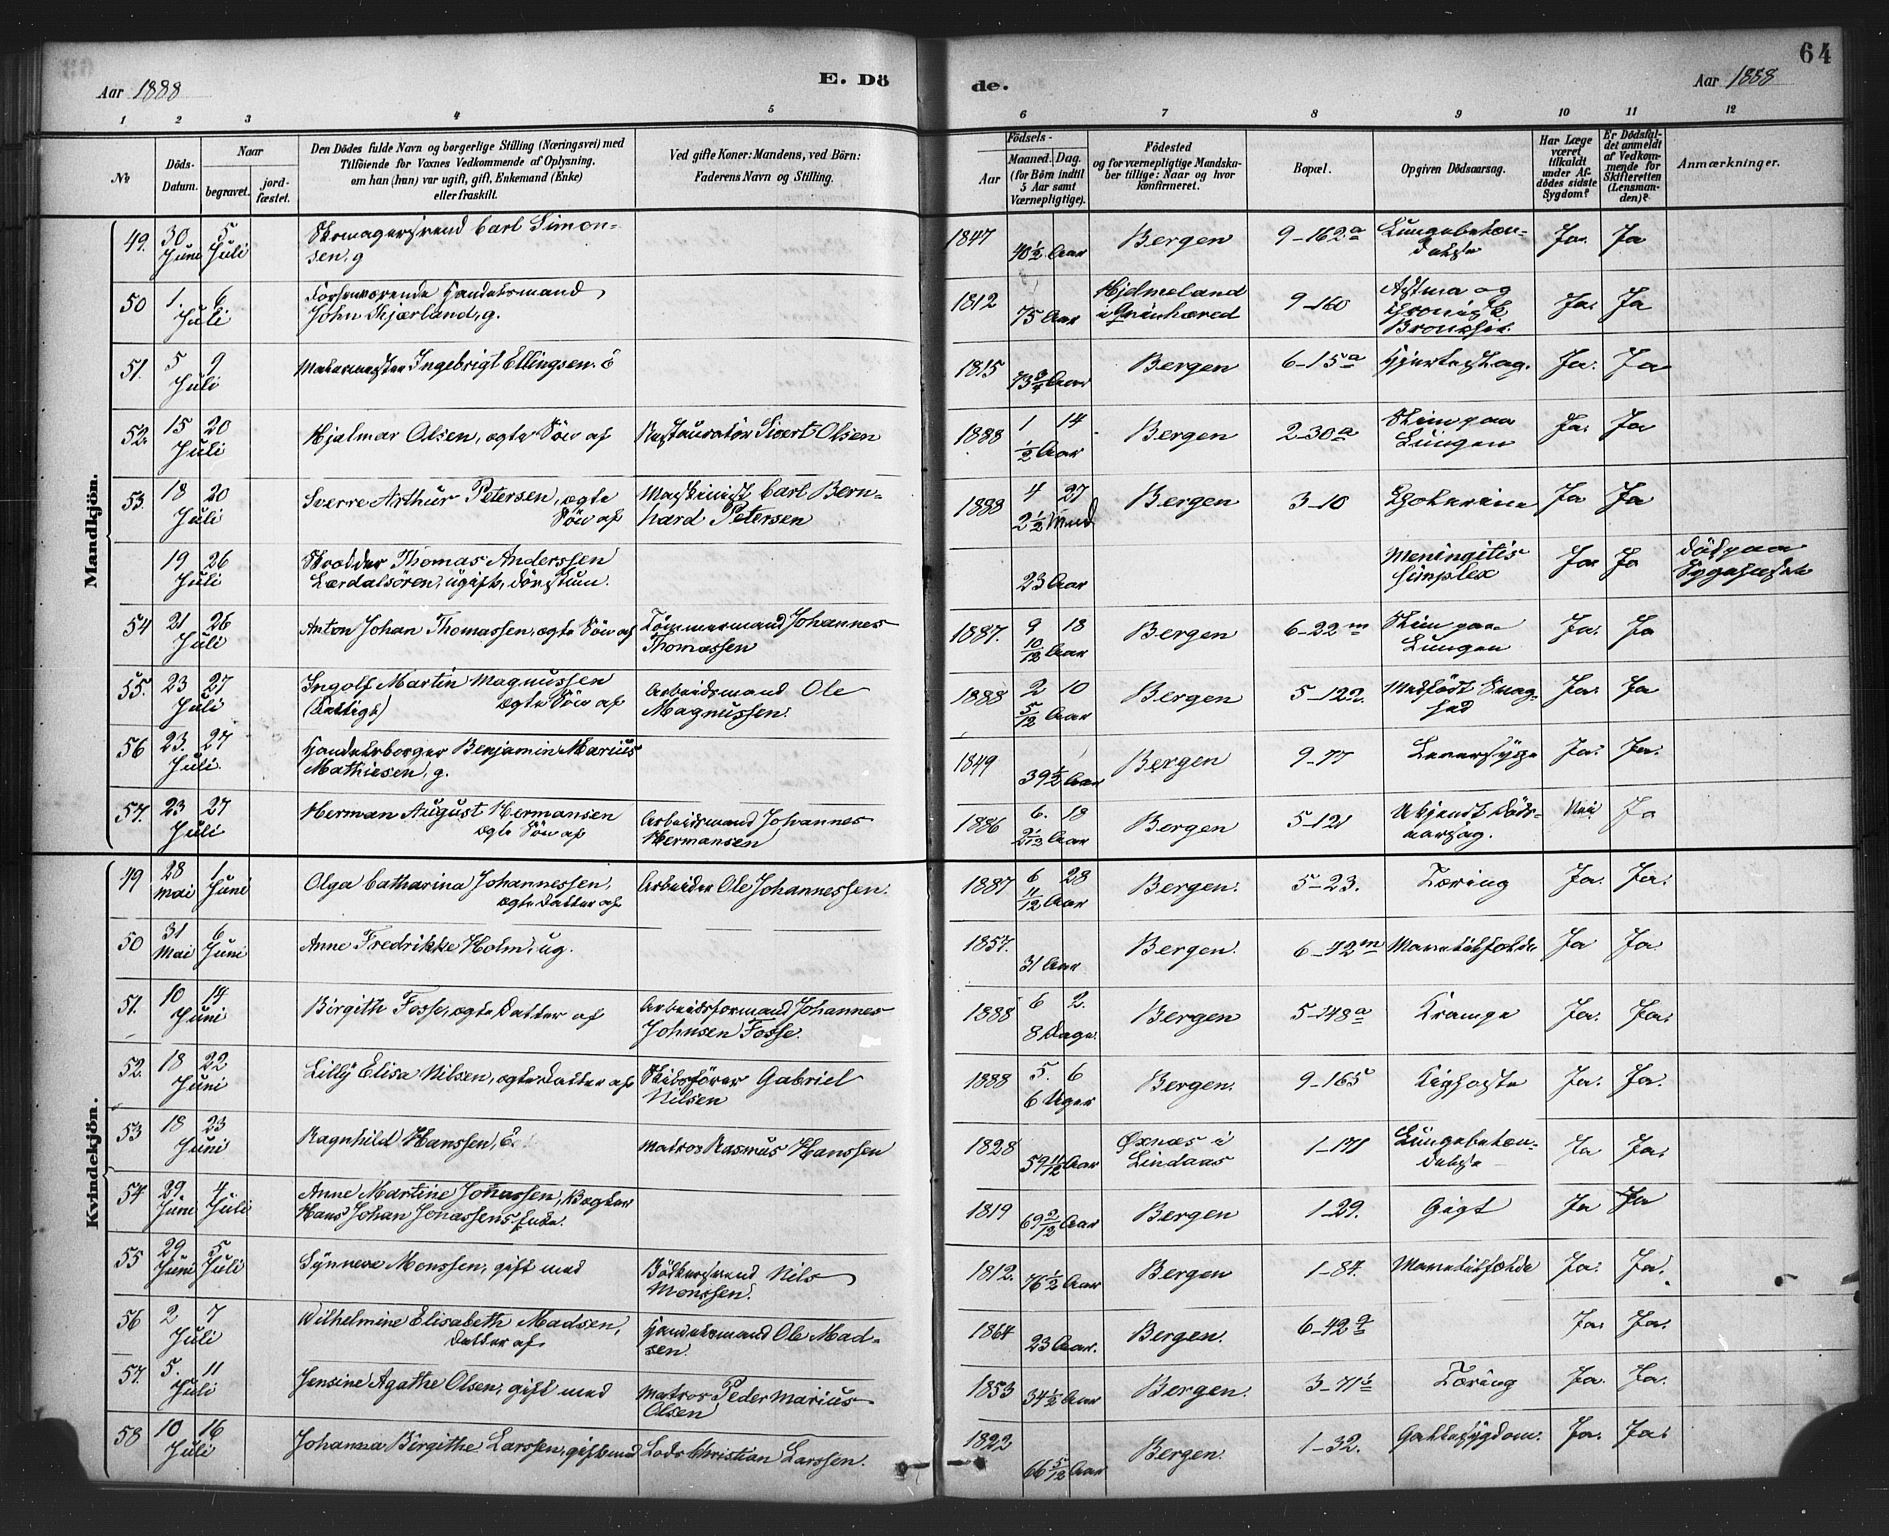 64
Aar 1888
E. Dö
de.
Aar 1888
1 2 3 4 5 6 7 8 9 10 11 12
№
Döds-
Datum.
Naar
begravet.
jord-
fæstet.
Den Dödes fulde Navn og borgerlige Stilling (Næringsvei) med
Tilföiende for Voxnes Vedkommende af Oplysning,
om han (hun) var ugift, gift, Enkemand (Enke)
eller fraskilt.
Ved gifte Koner: Mandens, ved Börn:
Faderens Navn og Stilling.
Födsels-
Aar
Maaned. Dag.
(for Börn indtil
5 Aar samt
Værnepligtige).
Födested
og for værnepligtige Mandska-
ber tillige: Naar og hvor
konfirmeret.
Bopæl.
Opgiven Dödsaarsag.
Har Læge
været
tilkaldt
under Af-
dödes sidste
Sygdom?
Er Dödsfal-
det anmeldt
af Vedkom-
mende for
Skifteretten
(Lensman-
den)?
Anmærkninger.
Mandkjön.
49. 30 Juni 5 Juli Skomagersvend Carl Simon-
sen, g 1847 40 1/2 Aar Bergen 9-162a Lungebetæn-
delse Ja. Ja
50 1. Juli 6 Forhenværende Handelsmand
John Skjærland, g. 1812 75 Aar Hjelmeland
9-160 Astma og
chronisk
Ja. Ja
51. 5 Juli 9 Malermester Ingebrigt Ellingsen. E 1815 73 3/4 Aar Bergen 6-15a Hjerteslag. Ja. Ja
52. 15 Juli 20 Hjalmar Olsen, ægte Sön af Restauratör Sivert Olsen 1888 1 14 1/2 Aar Bergen 2-30a Sliim paa
Lungen Ja. Ja
53. 18 Juli 20 Sverre Arthur Petersen, ægte
Sön af Maskinist Carl Bern-
hard Petersen 1888 4 27 2 1/2 Mnd Bergen 3-10 Cholerine Ja Ja
19 Juli 26 Skrædder Thomas Anderssen
Lærdalsören, ugift, 23 Aar Meningitis
simplex Ja Ja död paa
Sygehuset
54 21 Juli 26 Anton Johan Thomassen, ægte Sön af Tömmermand Johannes
Thomassen 1887. 9 18 10/12 Aar Bergen 6-22m Sliim paa
Lungen Ja. Ja
55. 23 Juli 27 Ingolf Martin Magnussen
ægte Sön af Arbeidsmand Ole
Magnussen. 1888 2 10 5/12 Aar Bergen 5-122. Medfödt Svag-
hed Ja. Ja
56 23. Juli. 27 Handelsborger Benjamin Marius
Mathiesen, g. 1849 39 Aar Bergen 9-77 Leversyge Ja. Ja.
57. 23 Juli 27 Herman August Hermansen
ægte Sön af Arbeidsmand Johannes
Hermansen 1886 6. 18 2 1/12 Aar Bergen 5-121 Ukjendt Döds-
aarsag. Nei Ja
Kvindekjön.
49 28 Mai 1 Juni Olga Catharina Johannessen,
ægte Datter af Arbeider Ole Johannessen. 1887 6 28 11/12 Aar Bergen. 5-23. Tæring Ja. Ja.
50 31 Mai 6 Juni Anne Fredrikke Holm, ug. 1857. 31 Aar Bergen 6-72m Mavetilfælde Ja Ja.
51. 10 Juni 14 Birgith Fosse, ægte Datter af Arbeidsformand Johannes
Johnsen Fosse. 1888 6 2. 8 Dage. Bergen 5-148a Krampe Ja. Ja.
52. 18 Juni 22 Lilly Elisa Nilsen, ægte Datter af Skibsförer Gabriel
Nilsen 1888 5. 6 6 Uger Bergen. 9-165 Kighoste Ja. Ja.
53 18 Juni 23 Ragnhild Hanssen, E. Matros Rasmus Hanssen 1828 59 11/12 Aar Øxnæs i
Lindaas 1-171 Lungebetæn-
delse Ja Ja.
54 29 Juni 4 Juli Anne Martine Jonassen,
Hans Johan Jonassens Enke. 1819 69 2/12 Aar Bergen 1-29. Gigt Ja Ja
55 29 Juni 5 Juli Synneve Monssen, gift med Bödkersvend Nils
Monssen. 1812. 76 1/2 Aar Bergen 1-84. Mavetilfælde Ja. Ja.
56 2 Juli 7 Wilhelmine Elisabeth Madsen,
Datter af Handelsmand Ole Mad-
sen. 1864 23 Aar. Bergen. 6-42 Ja. Ja.
57. 5. Juli 11 Jensine Agathe Olsen, gift med Matros Peder Marius
Olsen 1853 34 1/2 Aar Bergen. 3-71 Tæring Ja. Ja.
58 10 Juli 16 Johanna Birgithe Larssen, gift med Lods Christian Larssen. 1822 66 5/12 Aar Bergen. 1-32. Galdesygdom. Ja. Ja.